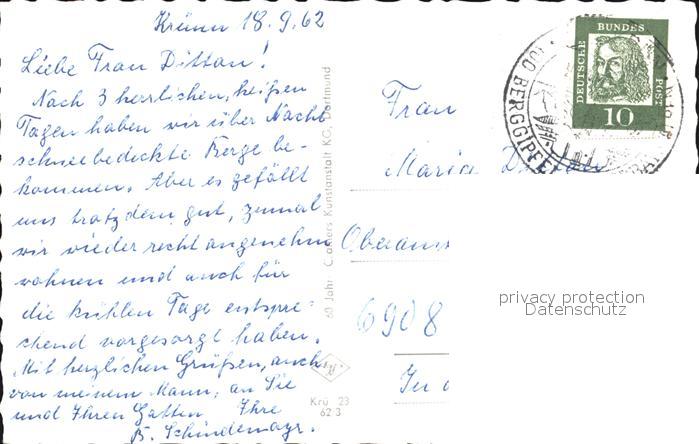 Krünn 18.9.62
Liebe Frau Dittan!
Nach 3 herrlichen, heißen
Tagen haben wir über Nacht
schneebedeckte Berge be-
kommen. Aber es gefällt
uns trotzdem gut, zumal
wir wieder recht angenehm
wohnen und auch für
die kühlen Tage entspre-
chend vorgesorgt haben.
Mit herzlichen Grüßen, auch
von meinem Mann, an Sie
und Ihren Gatten Ihre
B. Schindemayr.
60 Jahr Kunstanstalt KG, Dortmund
Krü 23
62 3
DEUTSCHE BUNDES POST
10
100 BERGGIPFE
Frau
Maria D
Oberam
6908
In
privacy protection
Datenschutz